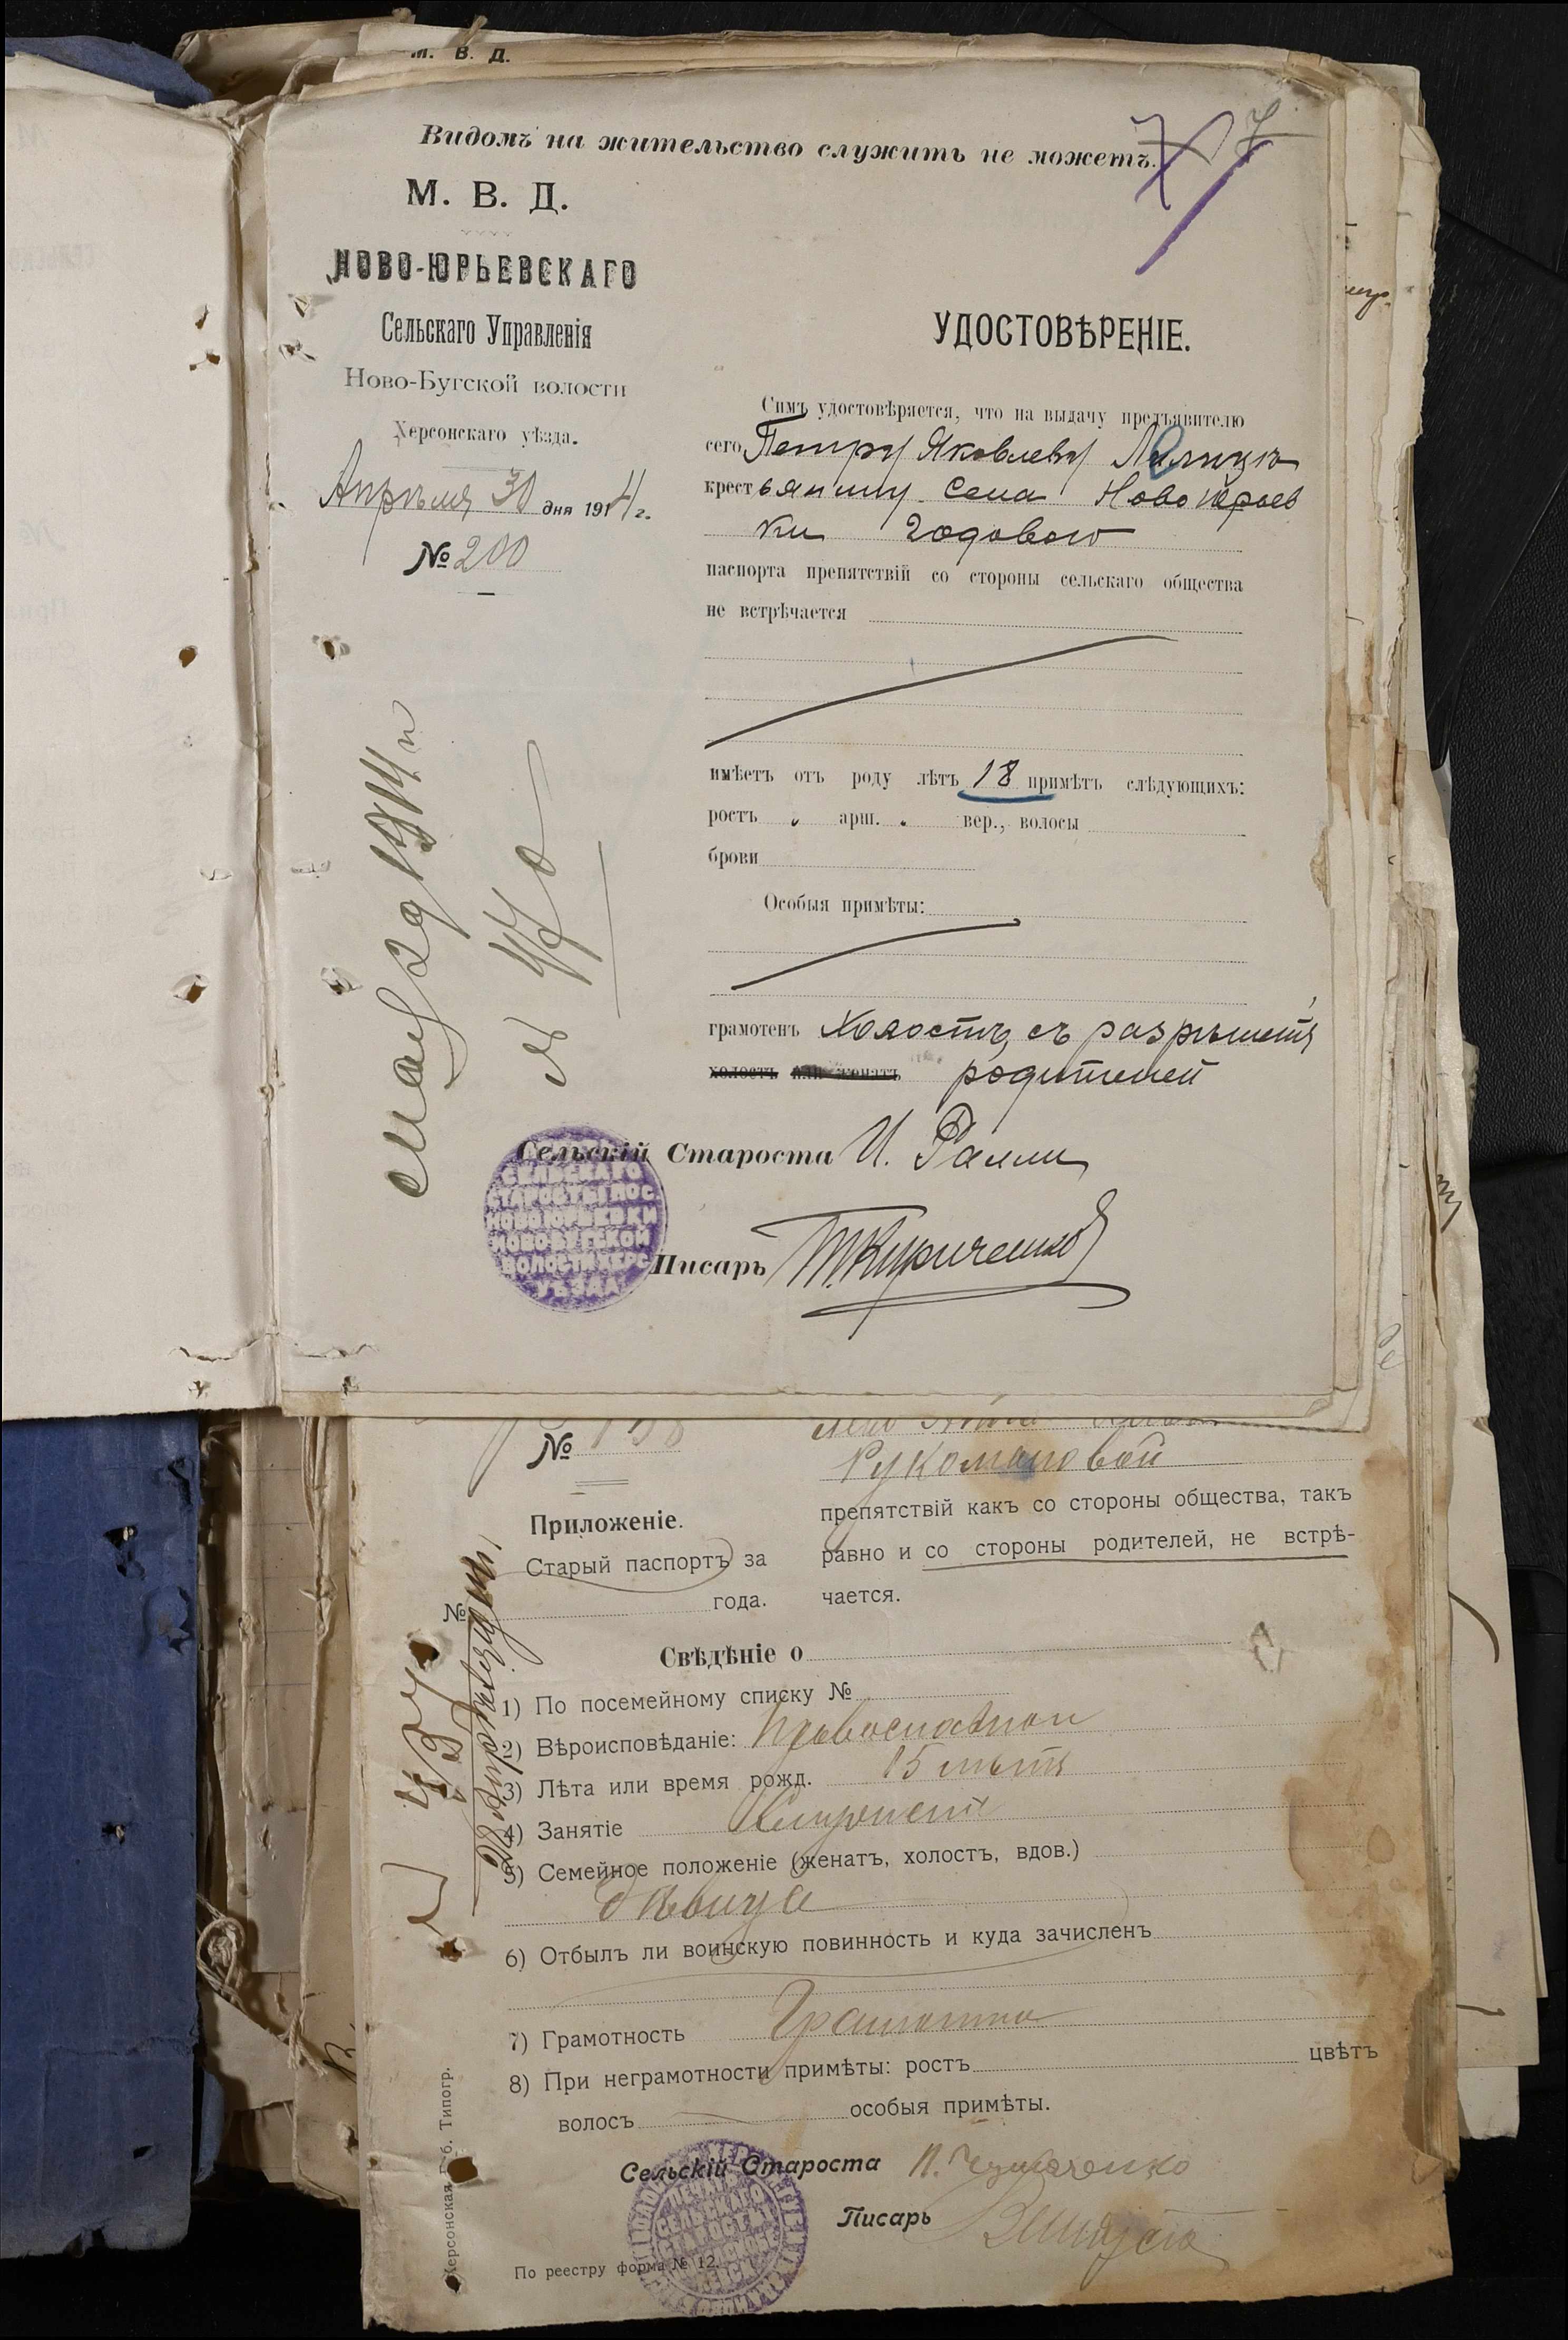 М. В. Д.
Видомъ на жительство служить не можетъ.
7 7
М. В. Д.
НОВО-ЮРЬЕВСКАГО
Сельскаго Управленія
Ново-Бугской волости
Херсонскаго уѣзда.
Апрѣля 30 дня 1914 г.
№ 200
УДОСТОВѢРЕНІЕ.
Симъ удостовѣряется, что на выдачу предъявителю
сего Петру Яковлеву
крестьянину села Новоюрьев
ки годового
паспорта препятствій со стороны сельскаго общества
не встрѣчается
имѣетъ отъ роду лѣтъ 18 примѣтъ слѣдующихъ:
ростъ " арш. " вер., волосы
брови
Особыя примѣты:
грамотенъ Холостъ, съ разрѣшенія
холостъ или женатъ родителей
Сельскій Староста И. Ралли
Писарь Т. Кириченко
СЕЛЬСКАГО
СТАРОСТЫ ПОС
НОВОЮРЬЕВКИ
НОВОБУГСКОЙ
ВОЛОСТИ ХЕРС
УѢЗДА
мая 29 1914 г
№
№ 138
Рукомановой
препятствій какъ со стороны общества, такъ
равно и со стороны родителей, не встрѣ-
чается.
Приложеніе.
Старый паспортъ за
№ года.
Свѣдѣніе о
1) По посемейному списку №
2) Вѣроисповѣданіе: Православном
3) Лѣта или время рожд. 15 лѣтъ
4) Занятіе
5) Семейное положеніе (женатъ, холостъ, вдов.)
дѣвица
6) Отбылъ ли воинскую повинность и куда зачисленъ
7) Грамотность Грамотна
8) При неграмотности примѣты: ростъ цвѣтъ
волосъ особыя примѣты.
Сельскій Староста П.
Писарь
По реестру форма № 12.
Херсонская Губ. Типогр.